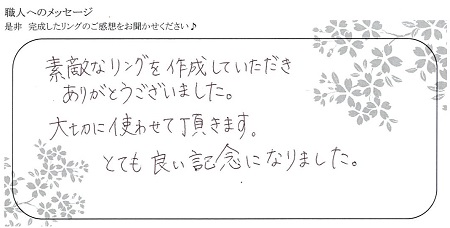 職人へのメッセージ
是非 完成したリングのご感想をお聞かせください♪
素敵なリングを作成していただき
ありがとうございました。
大切に使わせて頂きます。
とても良い記念になりました。